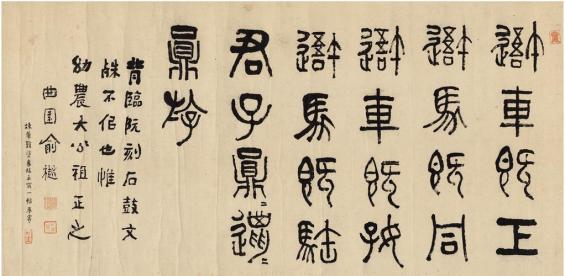 吾車既工
吾馬既同
吾車既好
吾馬既𩣡
君子員=邋=
員斿
背臨阮刻石鼓文
殊不佀也惟
幼農大公祖正之
曲園俞樾